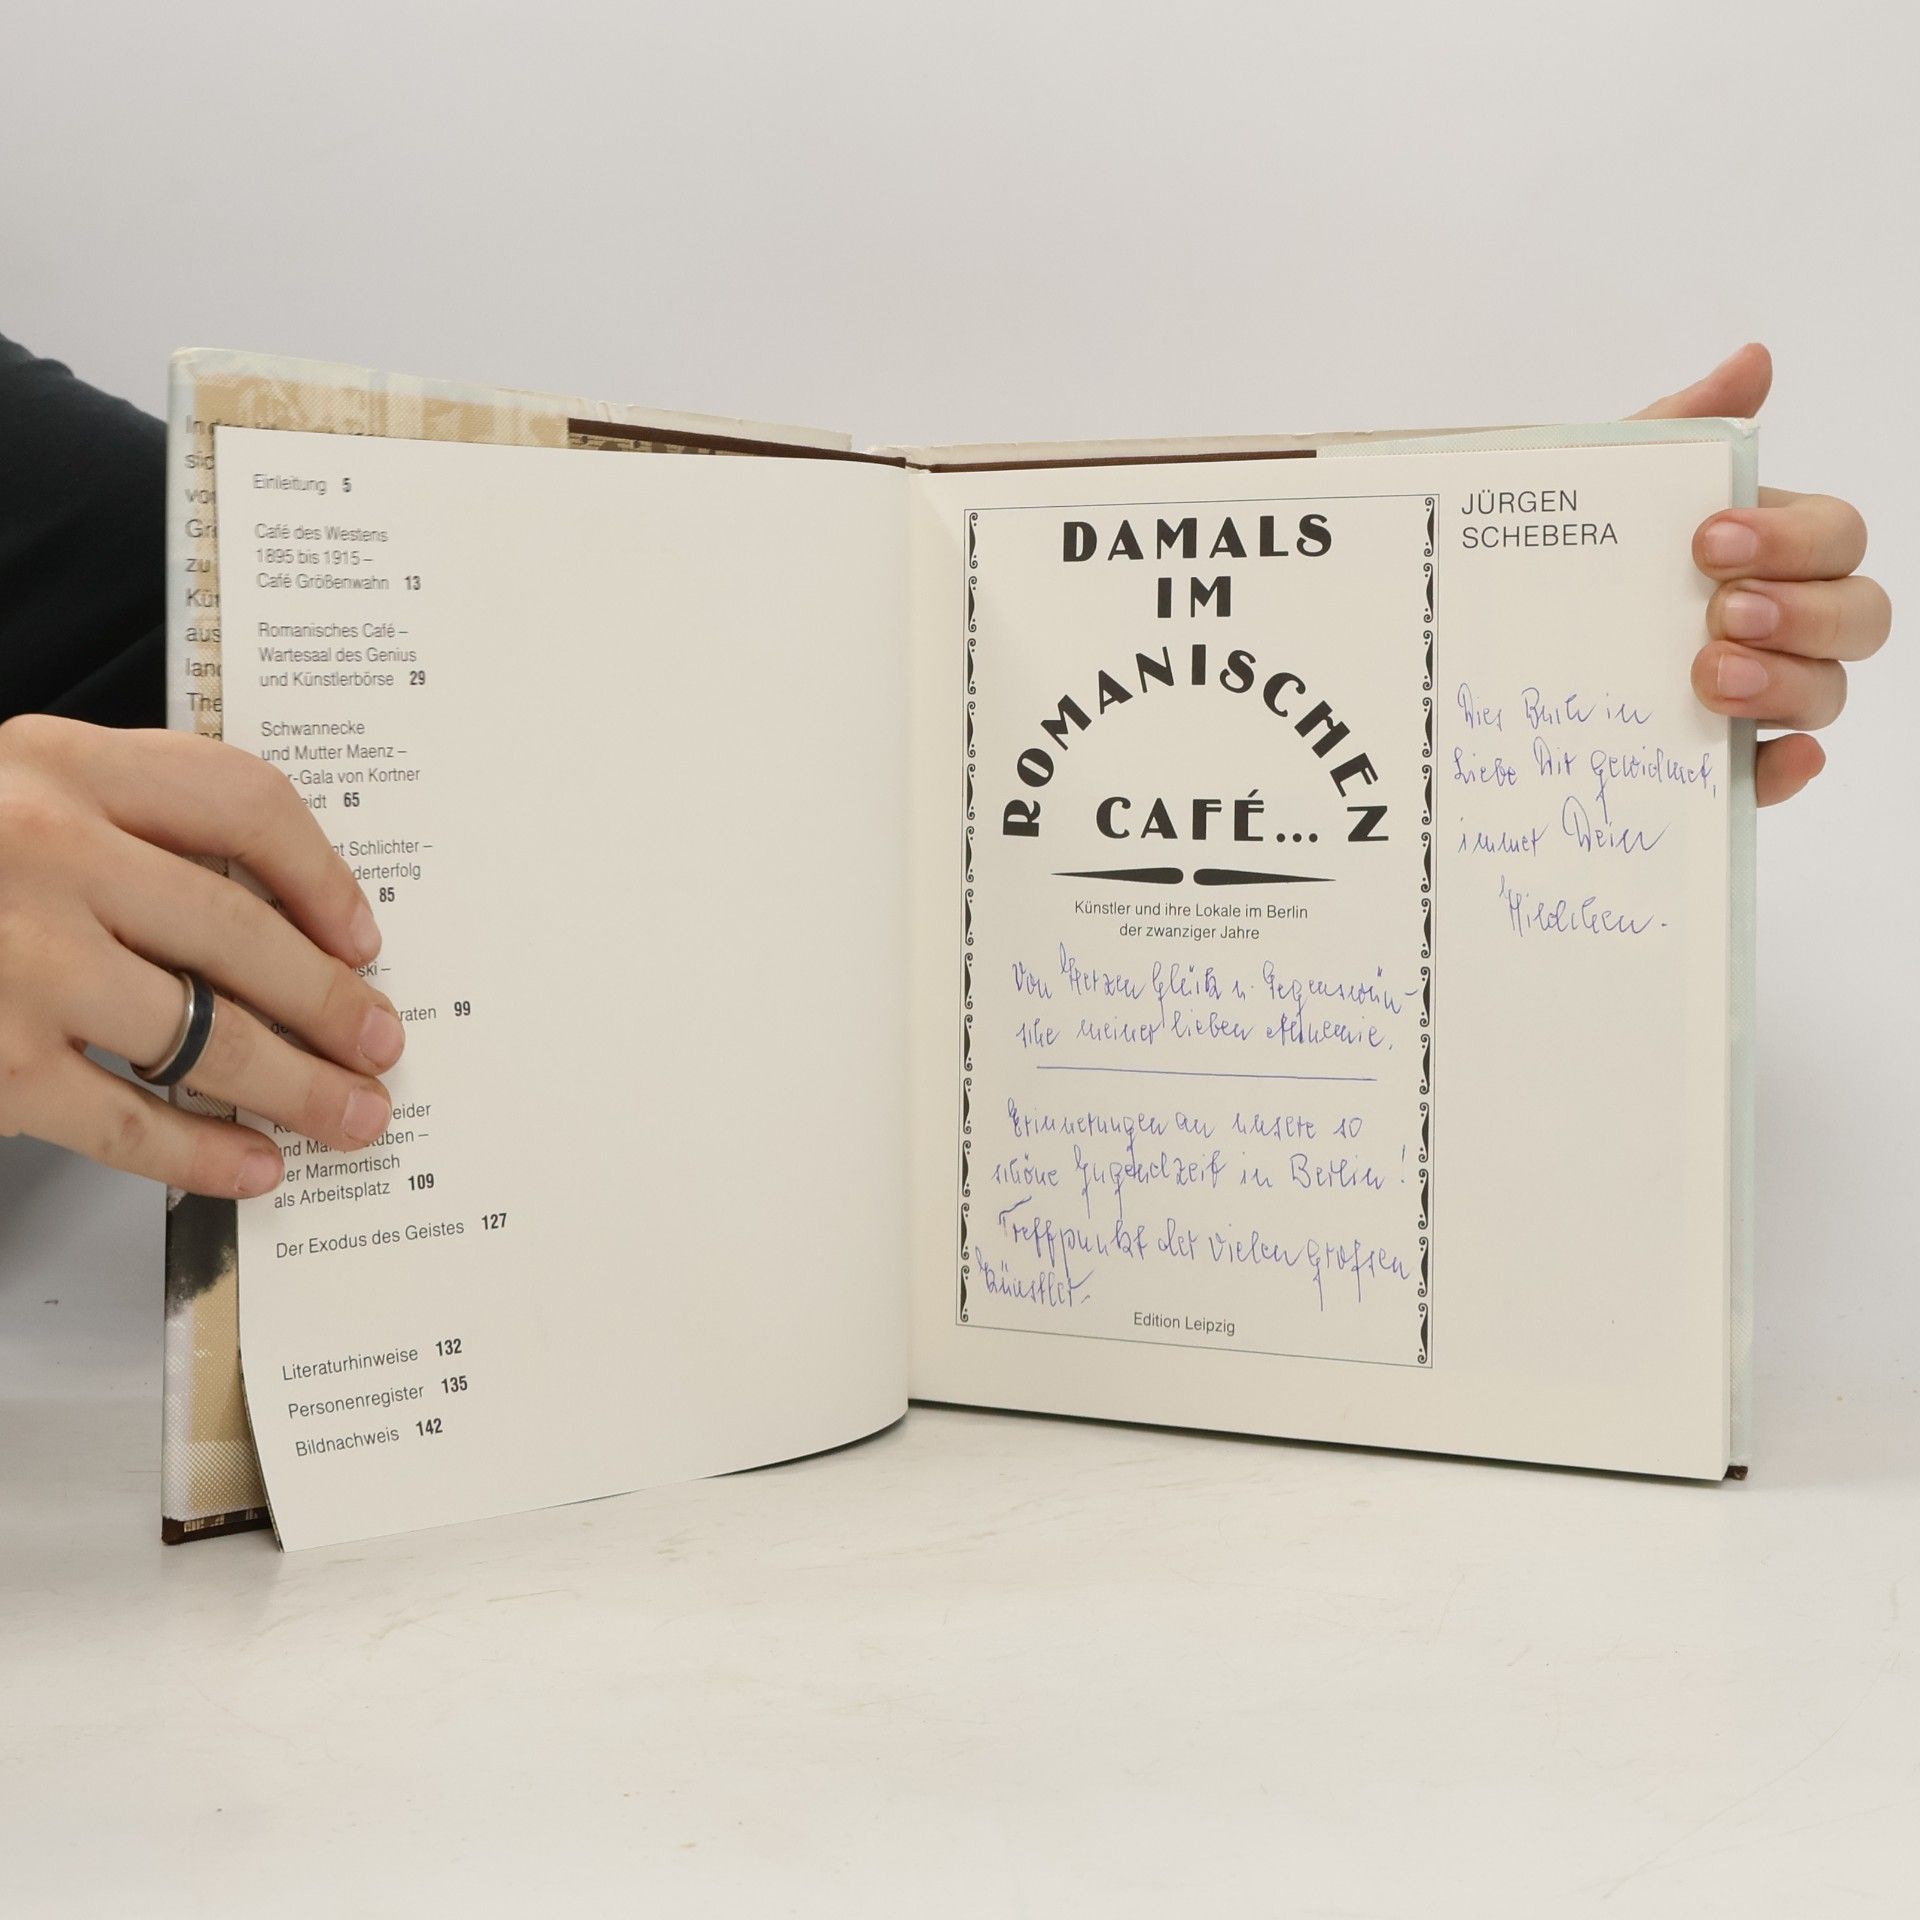 Einleitung 5
Café des Westens
1895 bis 1915 –
Café Größenwahn 13
Romanisches Café –
Wartesaal des Genius
und Künstlerbörse 29
Schwannecke
und Mutter Maenz –
r-Gala von Kortner
eidt 65
t Schlichter –
derterfolg
85
ski –
raten 99
eider
und Ma uben –
der Marmortisch
als Arbeitsplatz 109
Der Exodus des Geistes 127
Literaturhinweise 132
Personenregister 135
Bildnachweis 142
In
sic
vo
Gr
zu
Kün
aus
land
The
DAMALS
IM
ROMANISCHEN
CAFÉ...
Künstler und ihre Lokale im Berlin
der zwanziger Jahre
Von Herzen Glück u. Segenswün-
sche meiner lieben
Erinnerungen an unsere so
schöne Jugendzeit in Berlin!
Treffpunkt der vielen grossen
Künstler.
Edition Leipzig
JÜRGEN
SCHEBERA
Dies Buch in
Liebe Dir gewidmet,
immer Dein
Hildchen.